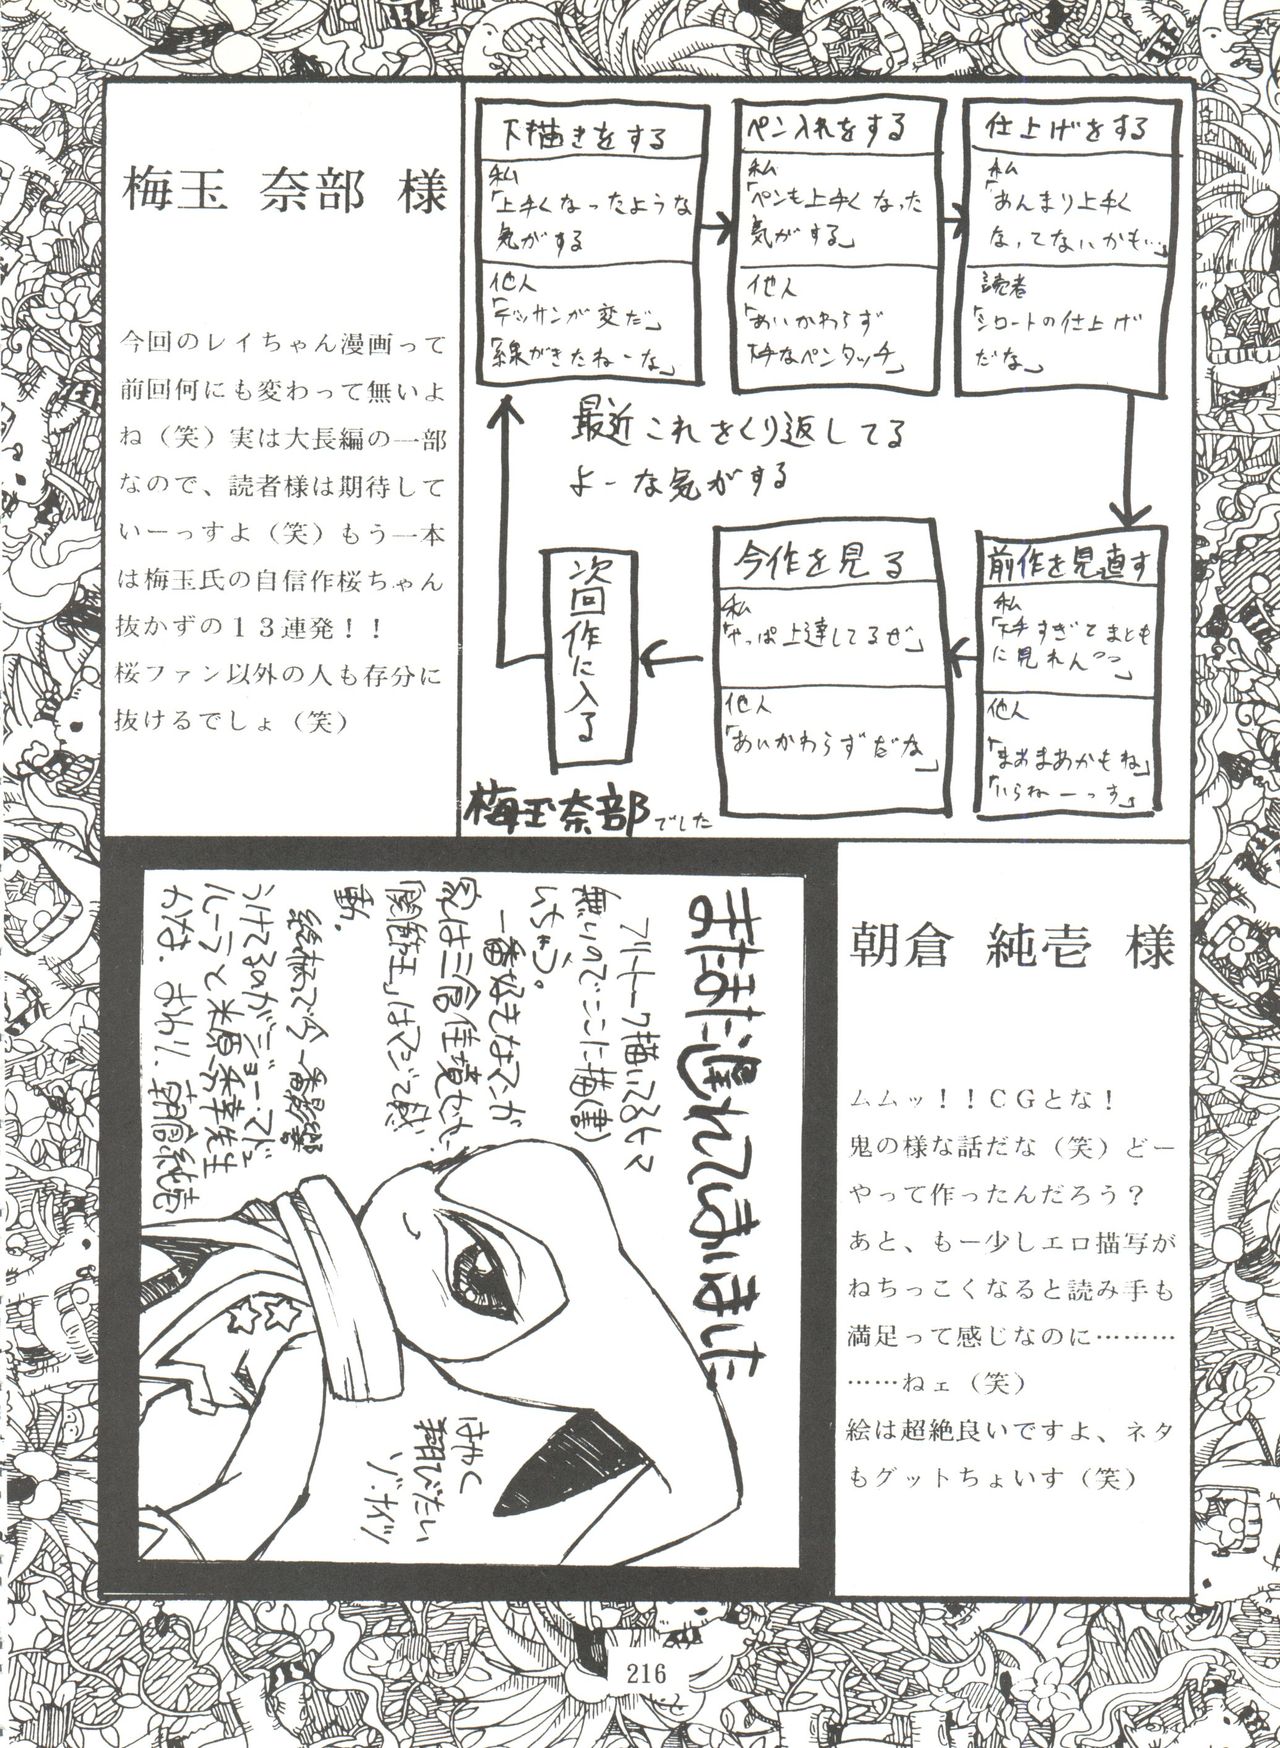 梅玉 奈部 様
今回のレイちゃん漫画って
前回何にも変わって無いよ
ね（笑）実は大長編の一部
なので、読者様は期待して
いーっすよ（笑）もう一本
は梅玉氏の自信作桜ちゃん
抜かずの１３連発！！
桜ファン以外の人も存分に
抜けるでしょ（笑）
下描きをする
私
「上手くなったような
気がする
他人
「デッサンが変だ」
「線がきたねーな」
ペン入れをする
私
「ペンも上手くなった
気がする」
他人
「あいかわらず
なペンタッチ」
仕上げをする
私
「あんまり上手く
なってないかも…」
読者
「シロートの仕上げ
だな」
最近これをくり返してる
よーな気がする
前作を見直す
私
すぎてまとも
に見れん」
他人
「まあまあかもね」
「いらねーっす」
今作を見る
私
「やっぱ上達してるぜ」
他人
「あいかわらずだな」
次回作に入る
梅玉奈部でした
朝倉 純壱 様
ムムッ！！ＣＧとな！
鬼の様な話だな（笑）どー
やって作ったんだろう？
あと、もー少しエロ描写が
ねちっこくなると読み手も
満足って感じなのに………
……ねェ（笑）
絵は超絶良いですよ、ネタ
もグットちょいす（笑）
またまた遅れてしまいました
フリートーク描いてるヒマ
無いのでここに描(書)
いちゃう。
一番好きなマンガ
家は三倉佳境さん。
「閣衛王」はマジで感
動。
絵柄で今一番影響
うけてるのがジョー・マデュ
レーラと米原朱幸先生
かな。おわり。朝倉純壱
はやく
翔びたい
ゾ.ナイツ
216